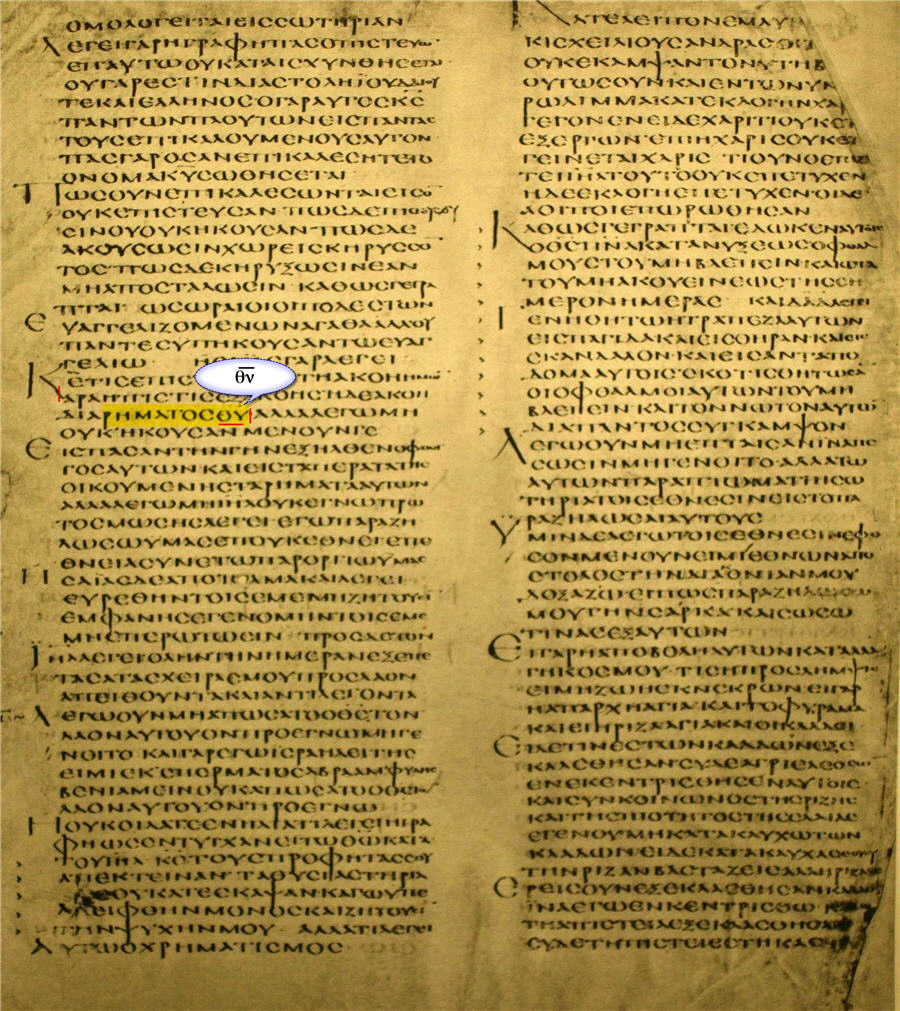 ΟΜΟΛΟΓΕΙΤΑΙΕΙϹϹΩΤΗΡΙΑΝ
ΛΕΓΕΙΓΑΡΗΓΡΑΦΗΠΑϹΟΠΙϹΤΕΥΩ
ΕΠΑΥΤΩΟΥΚΑΤΑΙϹΧΥΝΘΗϹΕΤΑΙ
ΟΥΓΑΡΕϹΤΙΝΔΙΑϹΤΟΛΗΙΟΥΔΑΙΟΥ
ΤΕΚΑΙΕΛΛΗΝΟϹΟΓΑΡΑΥΤΟϹΚϹ
ΠΑΝΤΩΝΠΛΟΥΤΩΝΕΙϹΠΑΝΤΑϹ
ΤΟΥϹΕΠΙΚΑΛΟΥΜΕΝΟΥϹΑΥΤΟΝ
ΠΑϹΓΑΡΟϹΑΝΕΠΙΚΑΛΕϹΗΤΕΤΟ
ΟΝΟΜΑΚΥϹΩΘΗϹΕΤΑΙ
ΠΩϹΟΥΝΕΠΙΚΑΛΕϹΩΝΤΑΙΕΙϹΟ
ΟΥΚΕΠΙϹΤΕΥϹΑΝ ΠΩϹΔΕ
ϹΙΝΟΥΟΥΚΗΚΟΥϹΑΝ ΠΩϹΔΕ
ΑΚΟΥϹΩϹΙΝΧΩΡΕΙϹΚΗΡΥϹϹΟ
ΤΟϹ ΠΩϹΔΕΚΗΡΥΞΩϹΙΝΕΑΝ
ΜΗΑΠΟϹΤΑΛΩϹΙΝ ΚΑΘΩϹΓΕΓΡΑ
ΠΤΑΙ ΩϹΩΡΑΙΟΙΟΙΠΟΔΕϹΤΩΝ
ΕΥΑΓΓΕΛΙΖΟΜΕΝΩΝΑΓΑΘΑΑΛΛΟΥ
ΠΑΝΤΕϹΥΠΗΚΟΥϹΑΝΤΩΕΥΑΓ
ΓΕΛΙΩ ΗϹΑΪΑϹΓΑΡΛΕΓΕΙ
θν
ΚΕΤΙϹΕΠΙϹ ΤΗΑΚΟΗΗΜΩ
ΑΡΑΗΠΙϹΤΙϹΕΞΑΚΟΗϹΗΔΕΑΚΟΗ
ΔΙΑΡΗΜΑΤΟϹΘΥΑΛΛΑΛΕΓΩΜΗ
ΟΥΚΗΚΟΥϹΑΝ ΜΕΝΟΥΝΓΕ
ΕΙϹΠΑϹΑΝΤΗΝΓΗΝΕΞΗΛΘΕΝΟΦΘΟΓ
ΓΟϹΑΥΤΩΝ ΚΑΙΕΙϹΤΑΠΕΡΑΤΑΤΗϹ
ΟΙΚΟΥΜΕΝΗϹΤΑΡΗΜΑΤΑΑΥΤΩΝ
ΑΛΛΑΛΕΓΩΜΗΙΗΛΟΥΚΕΓΝΩΠΡΩ
ΤΟϹΜΩϹΗϹΛΕΓΕΙ ΕΓΩΠΑΡΑΖΗ
ΛΩϹΩΥΜΑϹΕΠΟΥΚΕΘΝΕΙΕΠΙ
ΕΘΝΕΙΑϹΥΝΕΤΩΠΑΡΟΡΓΙΩΥΜΑϹ
ΗϹΑΪΑϹΔΕΑΠΟΤΟΛΜΑΚΑΙΛΕΓΕΙ
ΕΥΡΕΘΗΝΤΟΙϹΕΜΕΜΗΖΗΤΟΥϹΙ
ΕΜΦΑΝΗϹΕΓΕΝΟΜΗΝΤΟΙϹΕΜΕ
ΜΗΕΠΕΡΩΤΩϹΙΝ ΠΡΟϹΔΕΤΟΝ
ΙΗΛΛΕΓΕΙΟΛΗΝΤΗΝΗΜΕΡΑΝΕΞΕΠΕ
ΤΑϹΑΤΑϹΧΕΙΡΑϹΜΟΥΠΡΟϹΛΑΟΝ
ΑΠΕΙΘΟΥΝΤΑΚΑΙΑΝΤΙΛΕΓΟΝΤΑ
ΛΕΓΩΟΥΝΜΗΑΠΩϹΑΤΟΟΘϹΤΟΝ
ΛΑΟΝΑΥΤΟΥΟΝΠΡΟΕΓΝΩΜΗΓΕ
ΝΟΙΤΟ ΚΑΙΓΑΡΕΓΩΙϹΡΑΗΛΕΙΤΗϹ
ΕΙΜΙΕΚϹΠΕΡΜΑΤΟϹΑΒΡΑΑΜΦΥΛΗϹ
ΒΕΝΙΑΜΕΙΝΟΥΚΑΠΩϹΑΤΟΟΘϹ
ΛΑΟΝΑΥΤΟΥΟΝΠΡΟΕΓΝΩ
ΗΟΥΚΟΙΔΑΤΕΕΝΗΛΙΑΤΙΛΕΓΕΙΗΓΡΑ
ΦΗΩϹΕΝΤΥΓΧΑΝΕΙΤΩΘΩΚΑΤΑ
ΤΟΥΙΗΛ ΚΕΤΟΥϹΠΡΟΦΗΤΑϹϹΟΥ
ΑΠΕΚΤΕΙΝΑΝ ΤΑΘΥϹΙΑϹΤΗΡΙΑ
ϹΟΥΚΑΤΕϹΚΑΨΑΝΚΑΓΩΥΠΕ
ΛΕΙΦΘΗΝΜΟΝΟϹΚΑΙΖΗΤΟΥϹΙ
ΤΗΝΨΥΧΗΝΜΟΥ ΑΛΛΑΤΙΛΕΓΕΙ
ΑΥΤΩΟΧΡΗΜΑΤΙϹΜΟϹ
ΚΑΤΕΛΕΙΠΟΝΕΜΑΥ
ΚΙϹΧΕΙΛΙΟΥϹΑΝΔΡΑϹΟΙ
ΟΥΚΕΚΑΜΨΑΝΓΟΝΥΤΗΒ
ΟΥΤΩϹΟΥΝΚΑΙΕΝΤΩΝΥΝ
ΡΩΛΙΜΜΑΚΑΤΕΚΛΟΓΗΝΧΑ
ΓΕΓΟΝΕΝΕΙΔΕΧΑΡΙΤΙΟΥΚΕ
ΕΞΕΡΓΩΝ ΕΠΙΗΧΑΡΙϹΟΥΚΕ
ΓΕΙΝΕΤΑΙΧΑΡΙϹ ΤΙΟΥΝΟΕΠΙ
ΤΟΥΤΟΟΥΚΕΠΕΤΥΧΕΝ
ΗΔΕΕΚΛΟΓΗΕΠΕΤΥΧΕΝΟΙΔΕ
ΛΟΙΠΟΙΕΠΩΡΩΘΗϹΑΝ
ΚΑΘΩϹΓΕΓΡΑΠΤΑΙΕΔΩΚΕΝΑΥΤΟΙϹ
ΟΘϹΠΝΑΚΑΤΑΝΥΞΕΩϹΟΦΘΑΛ
ΜΟΥϹΤΟΥΜΗΒΛΕΠΕΙΝΚΑΙΩΤΑ
ΤΟΥΜΗΑΚΟΥΕΙΝΕΩϹΤΗϹϹΗ
ΜΕΡΟΝΗΜΕΡΑϹ ΚΑΙΔΑΔΛΕΓΕΙ
ΓΕΝΗΘΗΤΩΗΤΡΑΠΕΖΑΑΥΤΩΝ
ΕΙϹΠΑΓΙΔΑΚΑΙΕΙϹΘΗΡΑΝΚΑΙΕΙϹ
ϹΚΑΝΔΑΛΟΝΚΑΙΕΙϹΑΝΤΑΠΟ
ΔΟΜΑΑΥΤΟΙϹϹΚΟΤΙϹΘΗΤΩϹΑΝ
ΟΙΟΦΘΑΛΜΟΙΑΥΤΩΝΤΟΥΜΗ
ΒΛΕΠΕΙΝ ΚΑΙΤΟΝΝΩΤΟΝΑΥΤΩ
ΔΙΑΠΑΝΤΟϹϹΥΓΚΑΜΨΟΝ
ΛΕΓΩΟΥΝΜΗΕΠΤΑΙϹΑΝΙΝΑΠΕ
ϹΩϹΙΝΜΗΓΕΝΟΙΤΟ ΑΛΛΑΤΩ
ΑΥΤΩΝΠΑΡΑΠΤΩΜΑΤΙΗϹΩ
ΤΗΡΙΑΤΟΙϹΕΘΝΕϹΙΝΕΙϹΤΟΠΑ
ΡΑΖΗΛΩϹΑΙΑΥΤΟΥϹ
ΥΜΙΝΔΕΛΕΓΩΤΟΙϹΕΘΝΕϹΙΝΕΦΟ
ϹΟΝΜΕΝΟΥΝΕΙΜΙΕΘΝΩΝΑΠΟ
ϹΤΟΛΟϹΤΗΝΔΙΑΚΟΝΙΑΝΜΟΥ
ΔΟΞΑΖΩ ΕΙΠΩϹΠΑΡΑΖΗΛΩϹΩ
ΜΟΥΤΗΝϹΑΡΚΑΚΑΙϹΩϹΩ
ΤΙΝΑϹΕΞΑΥΤΩΝ
ΕΙΓΑΡΗΑΠΟΒΟΛΗΑΥΤΩΝΚΑΤΑΛΛΑ
ΓΗΚΟϹΜΟΥ ΤΙϹΗΠΡΟϹΛΗΜΨΙϹ
ΕΙΜΗΖΩΗΕΚΝΕΚΡΩΝ ΕΙΓΑΡ
ΗΑΠΑΡΧΗΑΓΙΑ ΚΑΙΤΟΦΥΡΑΜΑ
ΚΑΙΕΙΗΡΙΖΑΑΓΙΑΚΑΙΟΙΚΛΑΔΟΙ
ΕΙΔΕΤΙΝΕϹΤΩΝΚΛΑΔΩΝΕΞΕ
ΚΛΑϹΘΗϹΑΝϹΥΔΕΑΓΡΙΕΛΑΙΟϹ
ΕΝΕΚΕΝΤΡΙϹΘΗϹΕΝΑΥΤΟΙϹ
ΚΑΙϹΥΝΚΟΙΝΩΝΟϹΤΗϹΡΙΖΗϹ
ΚΑΙΤΗϹΠΙΟΤΗΤΟϹΤΗϹΕΛΑΙΑϹ
ΕΓΕΝΟΥΜΗΚΑΤΑΚΑΥΧΩΤΩΝ
ΚΛΑΔΩΝΕΙΔΕΚΑΤΑΚΑΥΧΑϹΑΙ
ΤΗΝΡΙΖΑΝΒΑϹΤΑΖΕΙϹΑΛΛΗΡΙΖΑϹΕ
ΕΡΕΙϹΟΥΝΕΞΕΚΛΑϹΘΗϹΑΝΚΛΑΔΟΙ
ΙΝΑΕΓΩΕΝΚΕΝΤΡΙϹΘΩ
ΤΗΑΠΙϹΤΕΙΑΕΞΕΚΛΑϹΘΗϹΑΝ
ϹΥΔΕΤΗΠΙϹΤΕΙΕϹΤΗΚΑϹ